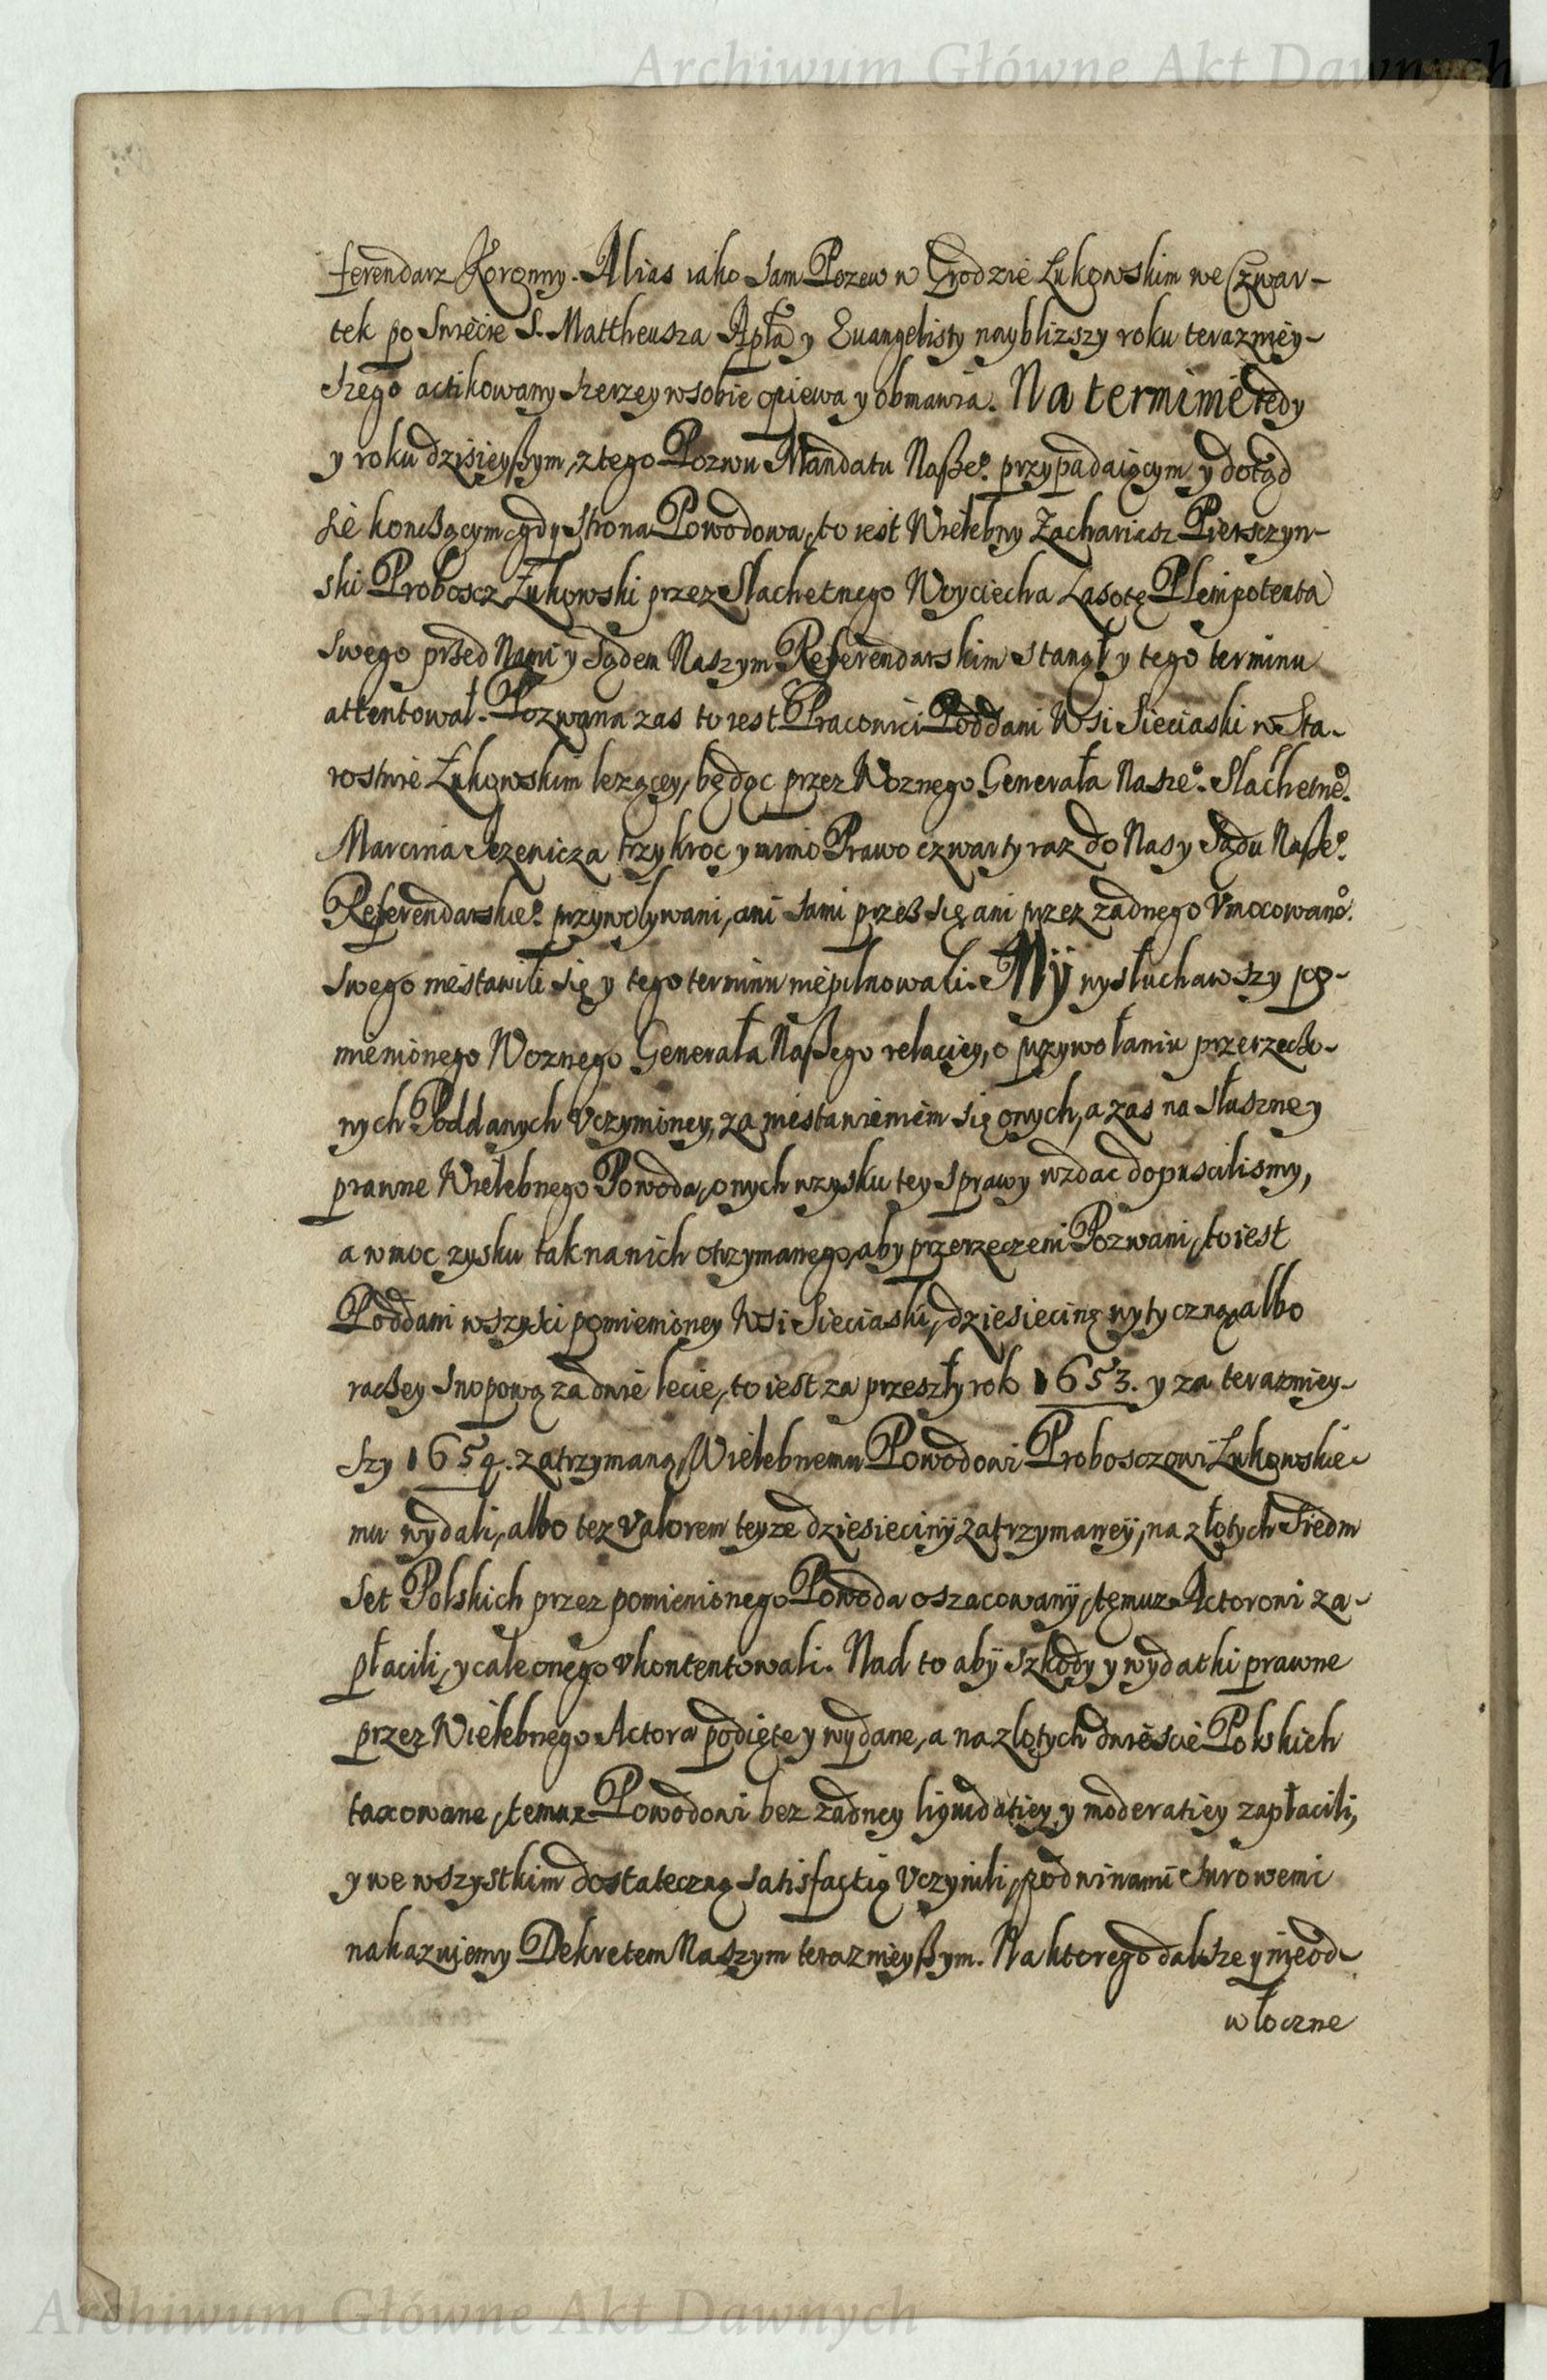 Archiwum Główne Akt Dawnych
ferendarz Koronny. Alias iako sam Pozew w Grodzie Łukowskim we Czwar-
tek po Swiecie S. Mattheusza Apła y Euangelisty naybliższy roku terazniey-
szego actikowany szerzey w sobie opiewa y obmawia. Na terminie tedy
y roku dzisieyßym, z tego Pozwu Mandatu Naße°. przypadaiącym y dotąd
sie konczącym, gdy strona Powodowa, to iest Wielebny Zachariasz Pierszczyn-
ski Proboscz Łukowski przez Slachetnego Woyciecha Lasotę Plenipotenta
swego przed Nami y Sądem Naszym Referendarskim stanął y tego terminu
attentował. Pozwana zas to iest Pracowici Poddani Wsi Sieciaski w Sta-
rostwie Łukowskim lezącey, będąc przez Woznego Generała Nasze°. Slachetne°.
Marcina Jezewicza trzykroc y mimo Prawo czwarty raz do Nas y Sądu Naße°.
Referendarskie°. przywoływani, ani sami przez się ani przez zadnego Vmocowane°.
swego niestawili się y tego terminu niepilnowali. My wysłuchawszy po-
mienionego Woznego Generała Naßego relaciey, o przywołaniu przerzeczo-
nych Poddanych Vczynioney, za niestawieniem się onych, a zas na słuszne y
prawne Wielebnego Powoda, onych w zysku tey sprawy wzdac dopuscilismy,
a w moc zysku tak na nich otrzymanego, aby przerzeczeni Pozwani, to iest
Poddani wszyscy pomienioney Wsi Sieciaski, dziesiecinę wytyczną albo
raczey snopową za dwie lecie, to iest za przeszły rok 1653. y za terazniey-
szy 1654. zatrzymaną, Wielebnemu Powodowi Proboszczowi Łukowskie-
mu wydali, albo tez Valorem teyze dziesieciny zatrzymaney, na złotych Siedm
Set Polskich przez pomienionego Powoda oszacowany, temuz Actorowi za-
płacili, y cale onego vkontentowali. Nad to aby szkody y wydatki prawne
przez Wielebnego Actora podięte y wydane, a na zlotych dwiescie Polskich
taxowane, temuz Powodowi bez zadney liquidatiey y moderatiey zapłacili,
y we wszystkim dostateczną satisfactią Vczynili, pod winami surowemi
nakazuiemy Dekretem Naszym teraznieyßym. Na ktorego dalsze y nieod-
włoczne
Archiwum Główne Akt Dawnych